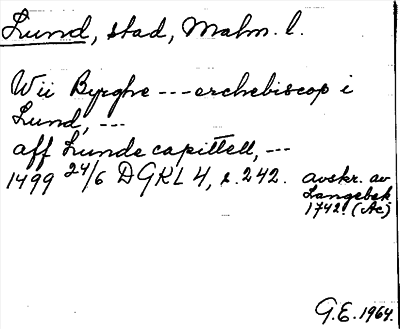 Lund, stad, Malm. l.
Wii Byrghe --- erchebiscop i
Lund, ---
aff Lunde capittell, ---
1499 24/6 DGKL 4, s. 242. avskr. av
Langebek
1742. (Ac)
G.E. 1964.